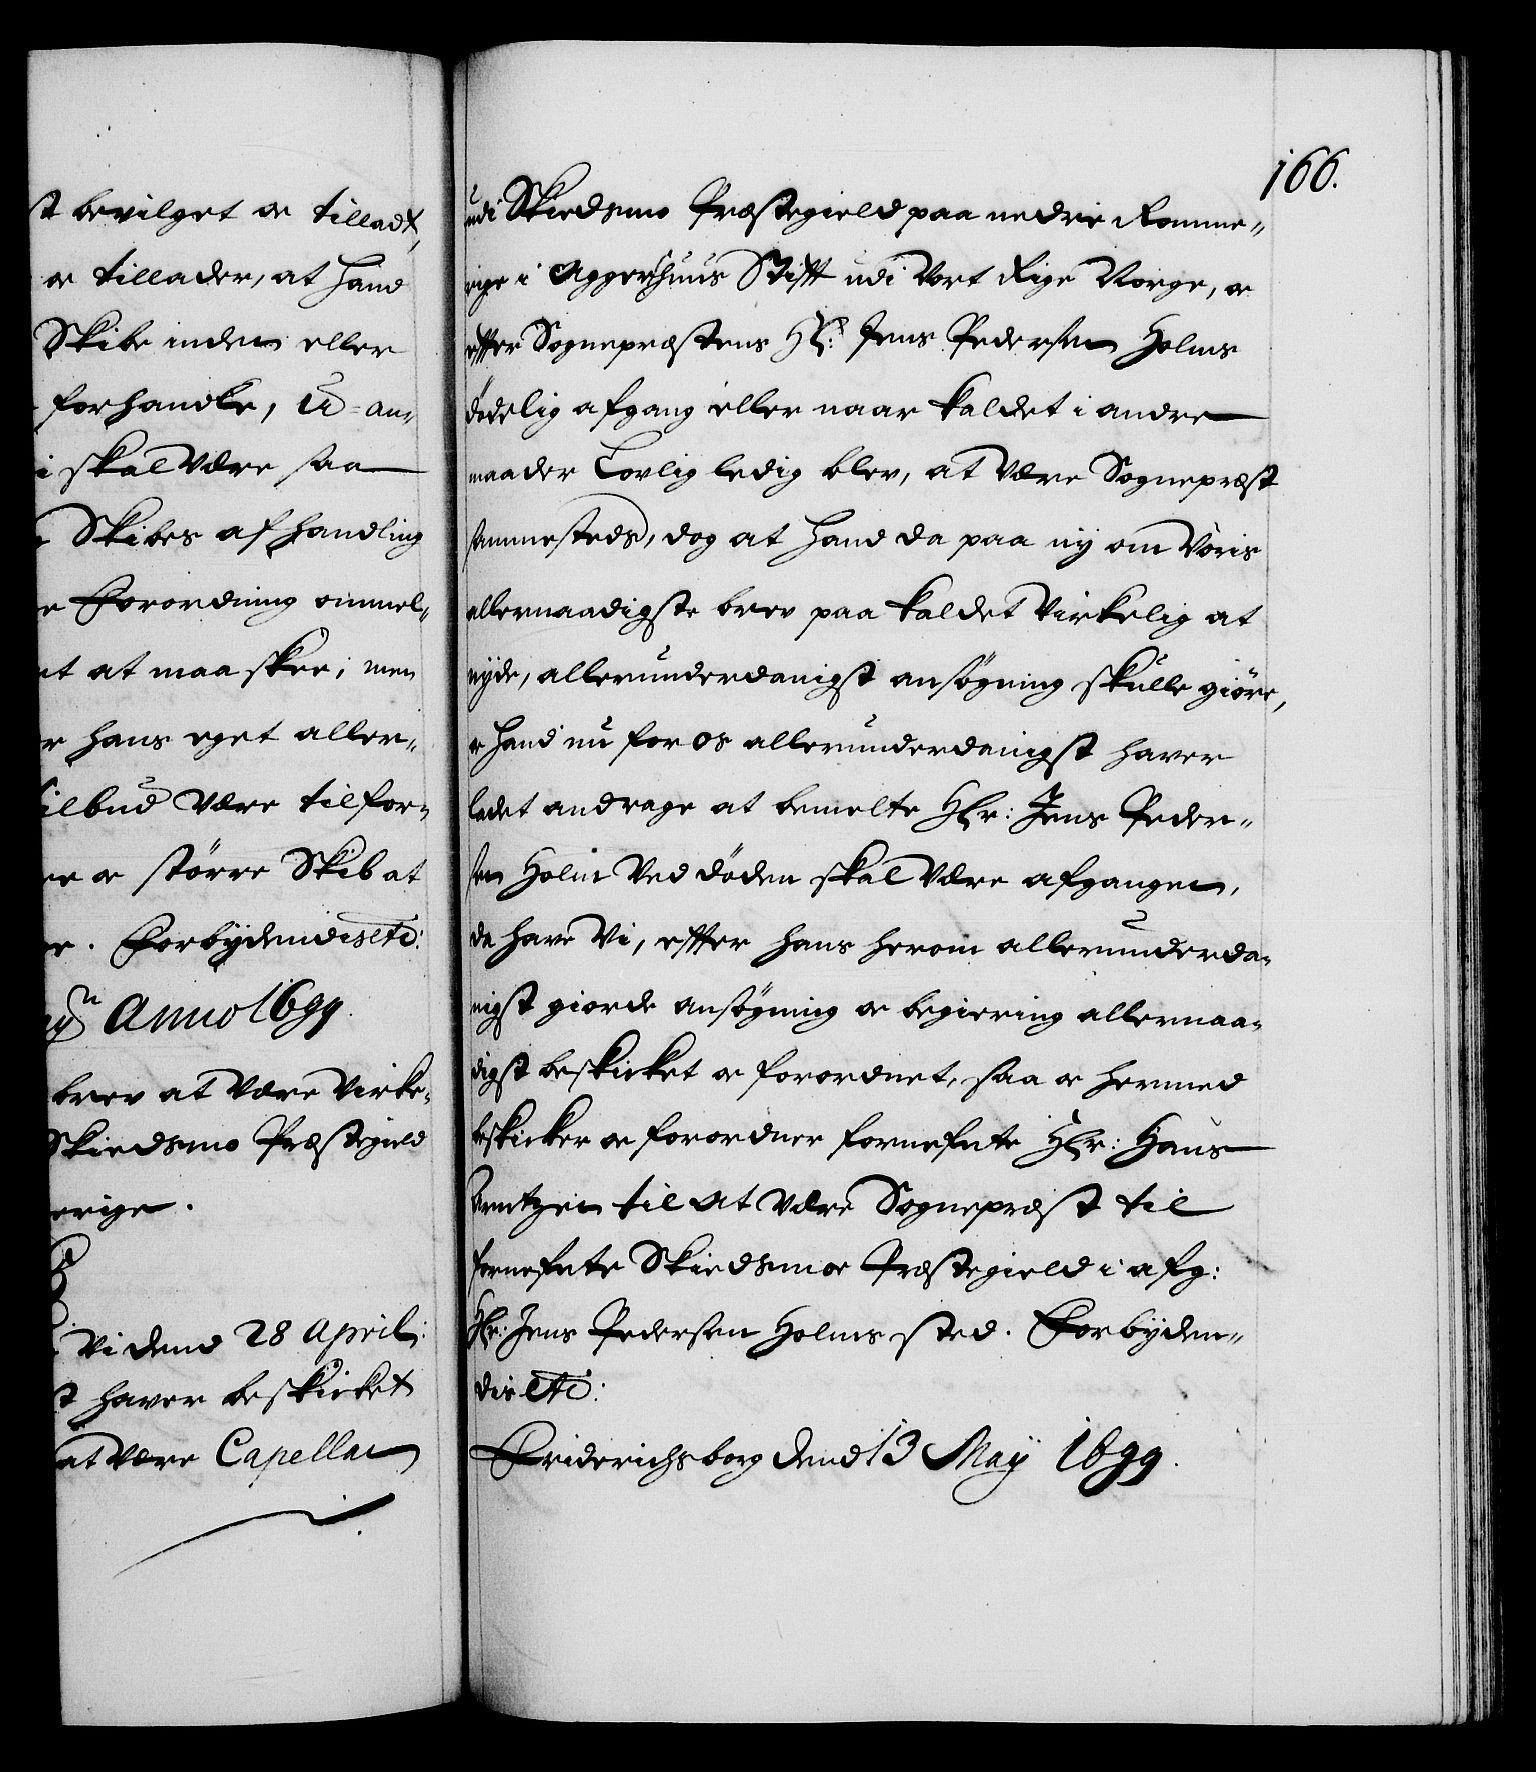 t bevilget oc tilladt,
oc tillader, at hand
Skibe inden eller
forhandle, U-an„
i skal være saa
Skibes afhandling
Forordning ommel„
et at maa skee; men
hans eget aller„
tilbud være tilfor„
oc större Skib at
Forbydendis etc:
Anno 1699.
brev at være Virke„
Skiedsmo Præstegield
erige.
Vi dend 28 April:
t haver beskicket
at være Capellan
166.
udi Skiedsmo Præstegield paa nedre Romme„
rige i Aggershuus Stift udi Vort Rige Norge, oc
effter Sognepræstens Hr: Jens Pedersen Holms
dödelig afgang eller naar kaldet i andre
maader Lovlig ledig blev, at være Sognepræst
sammesteds, dog at hand da paa ny om Voris
allernaadigste brev paa kaldet Virkelig at
nyde, allerunderdanigst ansögning skulle giöre,
oc hand nu for os allerunderdanigst haver
ladet andrage at bemelte Hr: Jens Peder„
sen Holm Ved döden skal være afgangen,
da have Vi, effter hans herom allerunderda„
nigst giorde ansögning oc begiering allernaa„
digst beskicket oc forordnet, saa oc hermed
beskicker oc forordner fornefnte Hr: Hans
til at være Sognepræst til
fornefnte Skiedsmoe Præstegield i afg:
Hr: Jens Pedersen Holms sted. Forbyden„
dis etc:
Friderichsborg dend 13 Maÿ 1699.